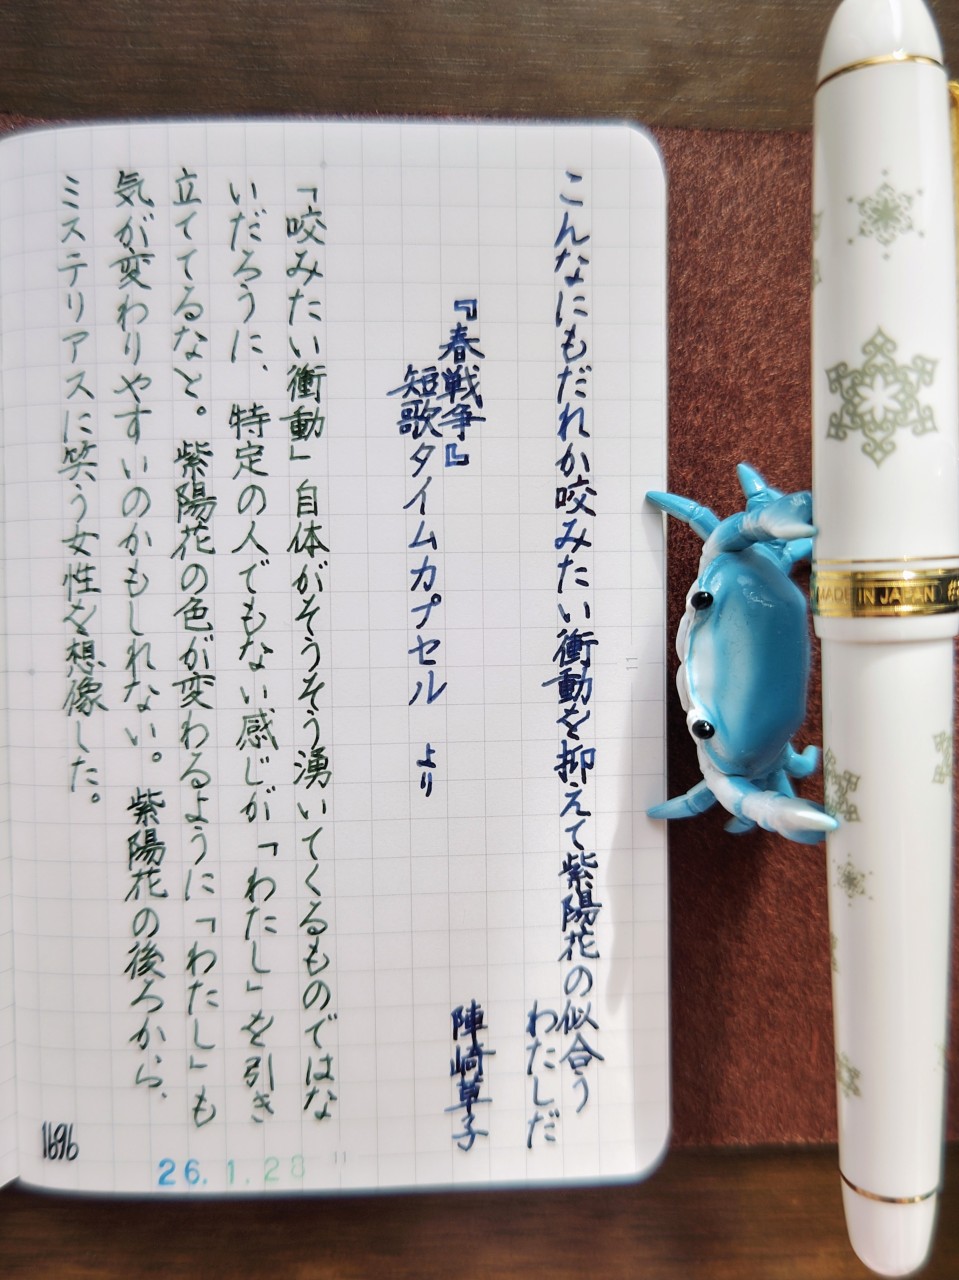 こんなにもだれか咬みたい衝動を抑えて紫陽花の似合う
わたしだ
陣崎草子
『春戦争』
短歌タイムカプセル より
「咬みたい衝動」自体がそうそう湧いてくるものではな
いだろうに、特定の人でもない感じが「わたし」を引き
立ててるなと。紫陽花の色が変わるように「わたし」も
気が変わりやすいのかもしれない。紫陽花の後ろから、
ミステリアスに笑う女性を想像した。
1696
26.1.28
11
MADE IN JAPAN